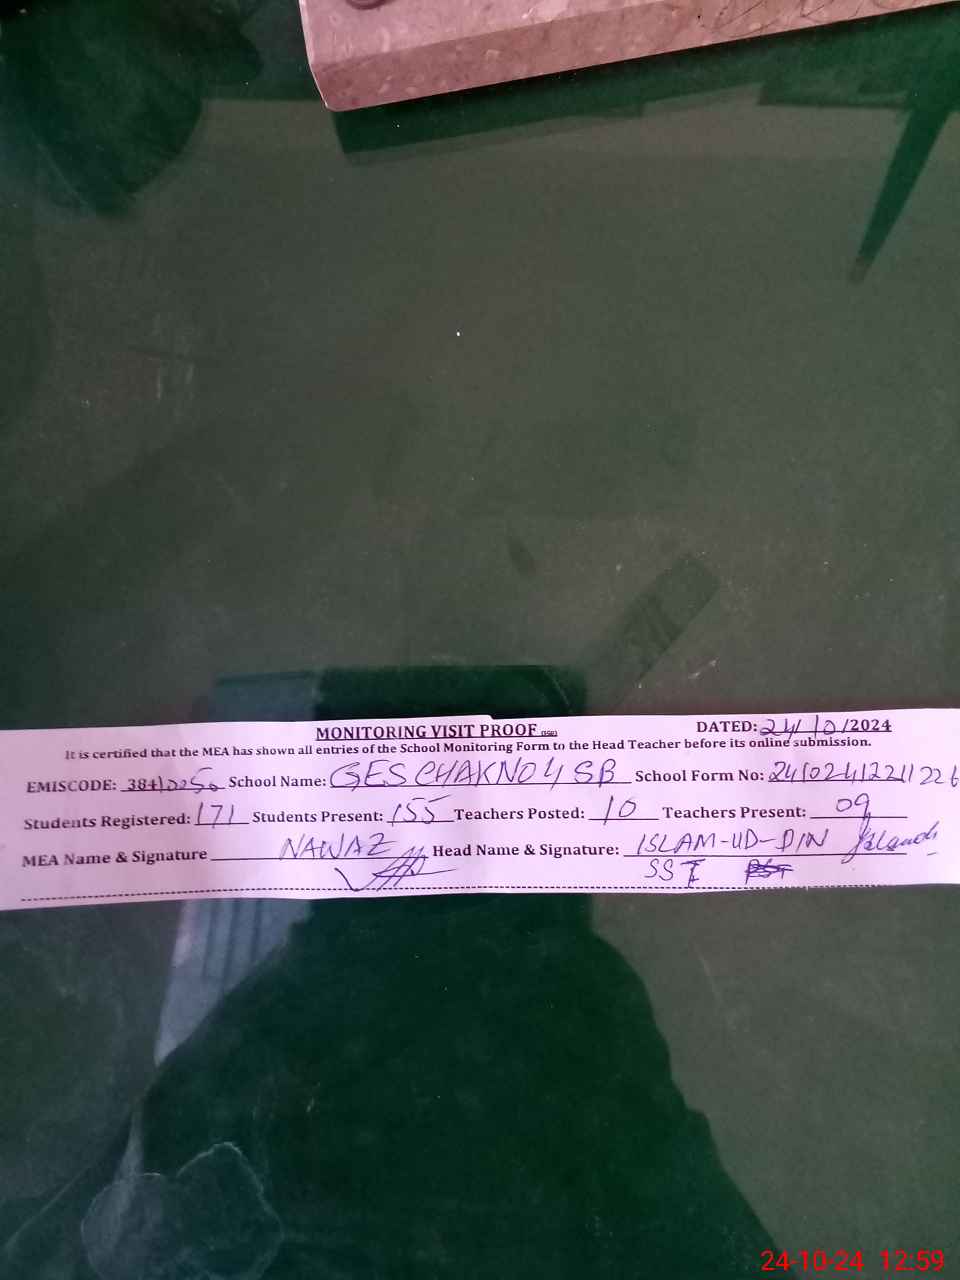 MONITORING VISIT PROOF DATED: 24/10/2024
It is certified that the MEA has shown all entries of the School Monitoring Form to the Head Teacher before its online submission.
EMISCODE: 38410256 School Name: GES CHAKNO 4 SB School Form No: 2410241221226
Students Registered: 171 Students Present: 155 Teachers Posted: 10 Teachers Present: 09
MEA Name & Signature NAWAZ Head Name & Signature: ISLAM-UD-DIN
SST
24-10-24 12:59